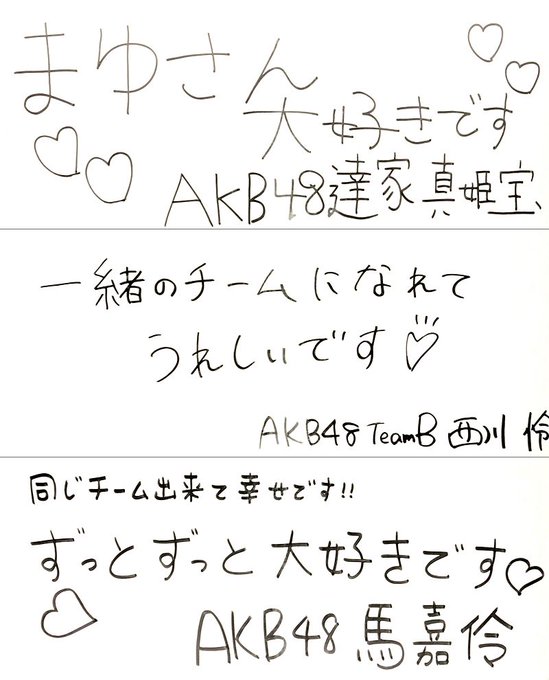 まゆさん
大好きです
AKB48達家真姫宝
一緒のチームになれて
うれしいです
AKB48 TeamB 西川 怜
同じチーム出来て幸せです!!
ずっとずっと大好きです
AKB48 馬嘉伶